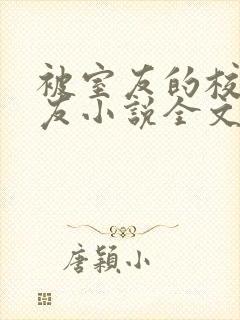 被室友的校
友小说全文
唐颖小